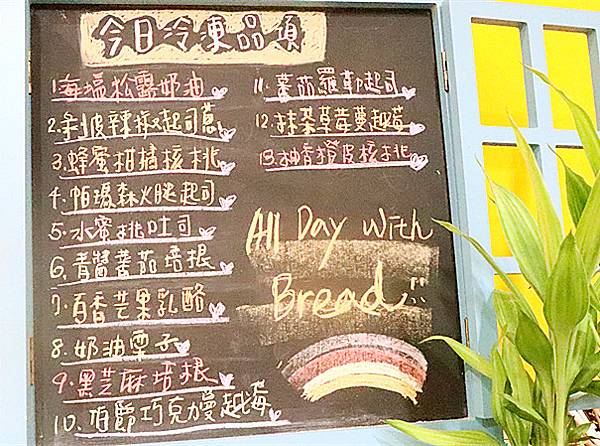 今日冷凍品項
1.海塩松露奶油
2.剥皮辣椒起司蔥
3.蜂蜜柑橘核桃
4.帕瑪森火腿起司
5.水蜜桃吐司
6.青醬蕃茄培根
7.百香芒果乳酪
8.奶油栗子
9.黑芝麻培根
10.伯爵巧克力蔓越莓
11.蕃茄羅勒起司
12.抹茶草莓蔓越莓
13.柚香橙皮核桃
All Day With
Bread